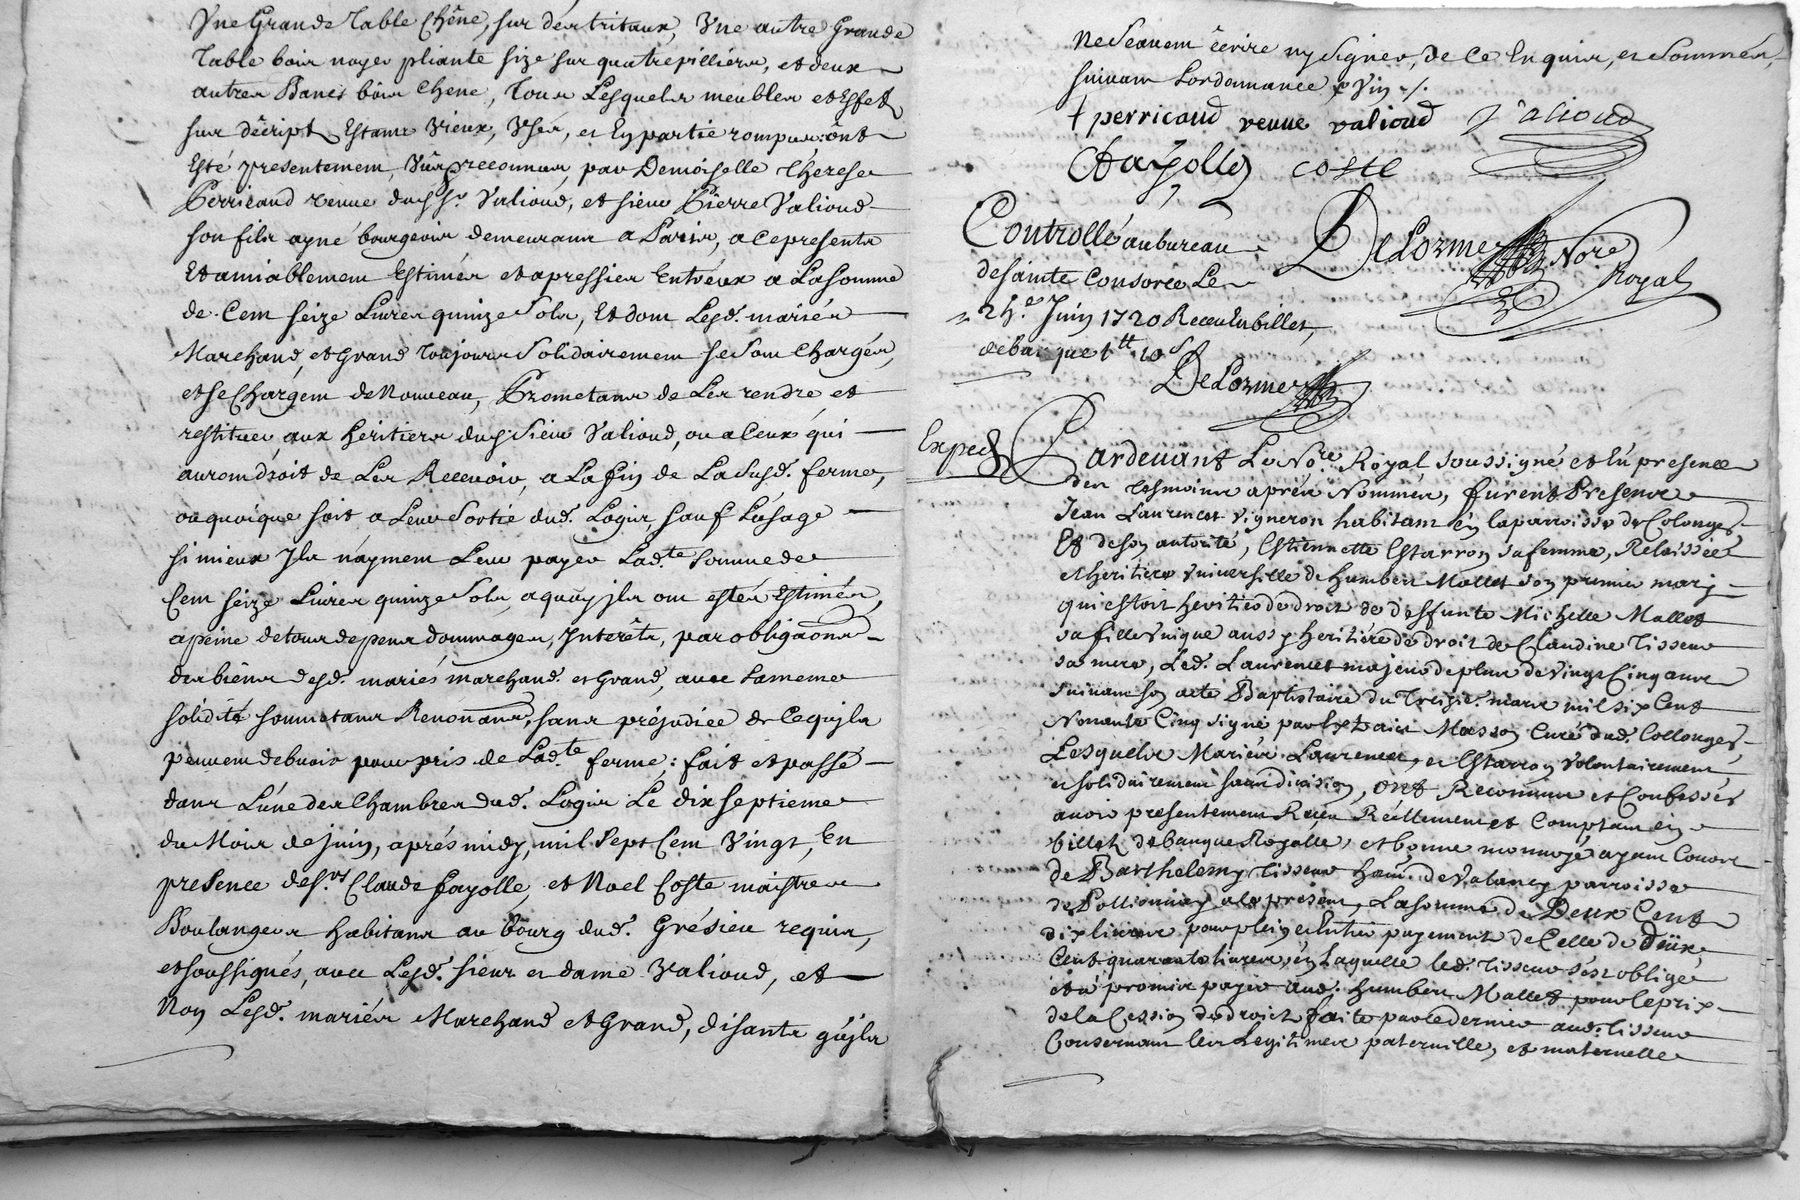 Vne Grande Table Chêne, sur des tritaux, Vne autre Grande
Table bois noyer pliante size sur quatre pilliers, et deux
autres Bancs bois Chene, Tous Lesquels meubles et Effets
sur décripts Estants Vieux, Vsés, et En partie rompus: ont
Esté presentement, Vûs, reconnus, par Demoiselle Thérese
Perricaud veuve dud. Sr. Valioud, et sieur Pierre Valioud
son fils ayné bourgeois demeurant a Paris, a ce presents
Et amiablement Estimés et apressiés Entréux a La somme
de Cent seize Livres quinze Sols, Et dont Lesd. mariés
Marchand, et Grand Toujours Solidairement se sont Chargés,
et se Chargent de Nouveau, Prometants de Les rendre et
restituer aux héritiers dud. Sieur Valioud, ou a Ceux qui
auront droit de Les Recevoir, a La fin de La Susd. ferme,
ou quoique soit a Leur Sortie dud. Logis, sauf Lusage
si mieux Ils n'ayment Leur payer Lad.te somme de
Cent seize Livres quinze Sols, a quoy ils ont estés Estimés,
a peine de tous depens dommages, Interêts, par obligaõns
des biens desd. mariés marchand. et Grand, avec La meme
solidité soumetans Renonans, sans préjudice de Ce quils
peuvent debvoir pour pris de Lad.te ferme; fait et passé
dans L'une des Chambres dud. Logis Le dix septieme
du Mois de juin, aprés midy, mil Sept Cent Vingt, En
presence des S.rs Claude fayolle, et Noel Coste maistres
Boulangers habitans au bourg dud. Grésieu requis,
et soussignés, avec Lesd. sieur et dame Valioud, et
Non Lesd. mariés Marchand et Grand, disants qu'ils
Ne Seavent écrire ny signer, de Ce Enquis, et Sommés,
suivant Lordonnance
perricaud veuve valioud Valioud
fayolle coste
Controllé au bureau DeLorme No.re Royal
de sainte Consorce Le
24.e Juin 1720 Receu En billet
de banque 1tt 10s
DeLorme
Exped
Pardevant Le No.re Royal soussigné et En presence
des Tesmoins aprés Nommés, furent Presents
Jean Laurencet vigneron habitant en la parroisse de Colonges
Et de son autorité, Estiennette Estarron sa femme, Relaissée
et heritiere Vniverselle de humbert Mallet son premier mary
qui estoit heritier de droit de desfunte Michelle Mallet
sa fille Vnique aussy heritiére de droit de Claudine Tisseur
sa mere, Led. Laurencet majeur de plus de vingt Cinq ans
suivant son acte Baptistaire du Treizie. mars mil six Cent
Nonante Cinq signé par Masson Curé dud. Collonges,
Lesquels Mariés Laurencet, et Estarron volontairement
et solidairement sans division, ont Reconnus et Confessés
avoir presentement Receu Réellement et Comptant en
billets de banque Royalle, et bonne monnoye ayant Cours
de Barthelemy Tisseur ham. de Valancy parroisse
de Pollionnay a ce present, La somme de Deux Cent
dix livres pour plein et Entier payement de Celle de deux
Cent quarante livres, en Laquelle led. Tisseur s'est obligé
et a promis payer aud. humbert Mallet pour le prix
de la Cession de droict faite par ce dernier aud. Tisseur
Conservant les Legitimes paternelle, et maternelle